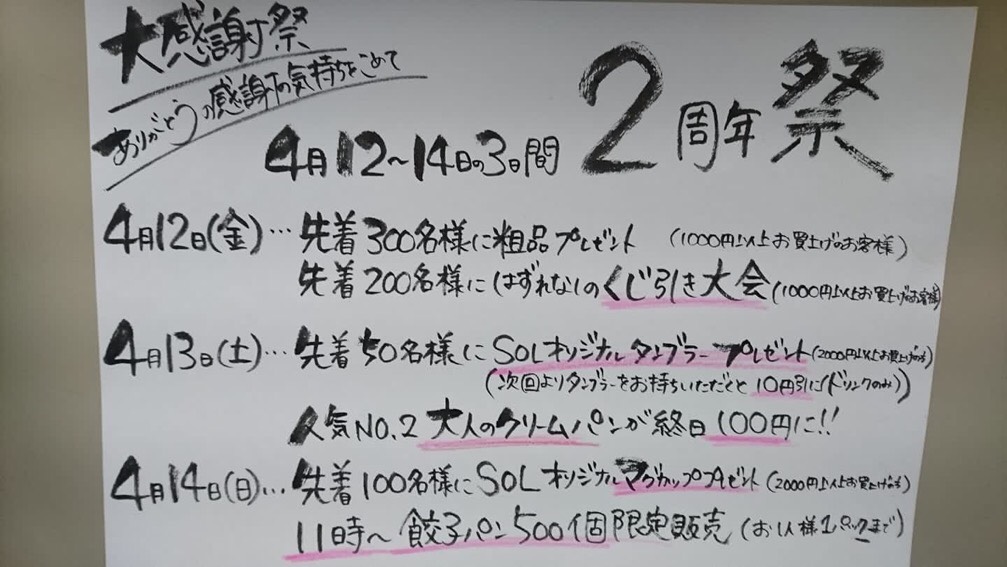 大感謝祭
ありがとうの感謝の気持ちをこめて
2周年祭
4月12～14日の3日間
4月12日(金)…先着300名様に粗品プレゼント (1000円以上お買上げのお客様)
先着200名様にはずれなしのくじ引き大会(1000円以上お買上げのお客様)
4月13日(土)…先着50名様にSOLオリジナルタンブラープレゼント(2000円以上お買上げの方)
(次回よりタンブラーをお持ちいただくと10円引に(ドリンクのみ))
人気NO.2 大人のクリームパンが終日100円に!!
4月14日(日)…先着100名様にSOLオリジナルマグカッププレゼント(2000円以上お買上げの方)
11時～餃子パン500個限定販売(お1人様1パックまで)